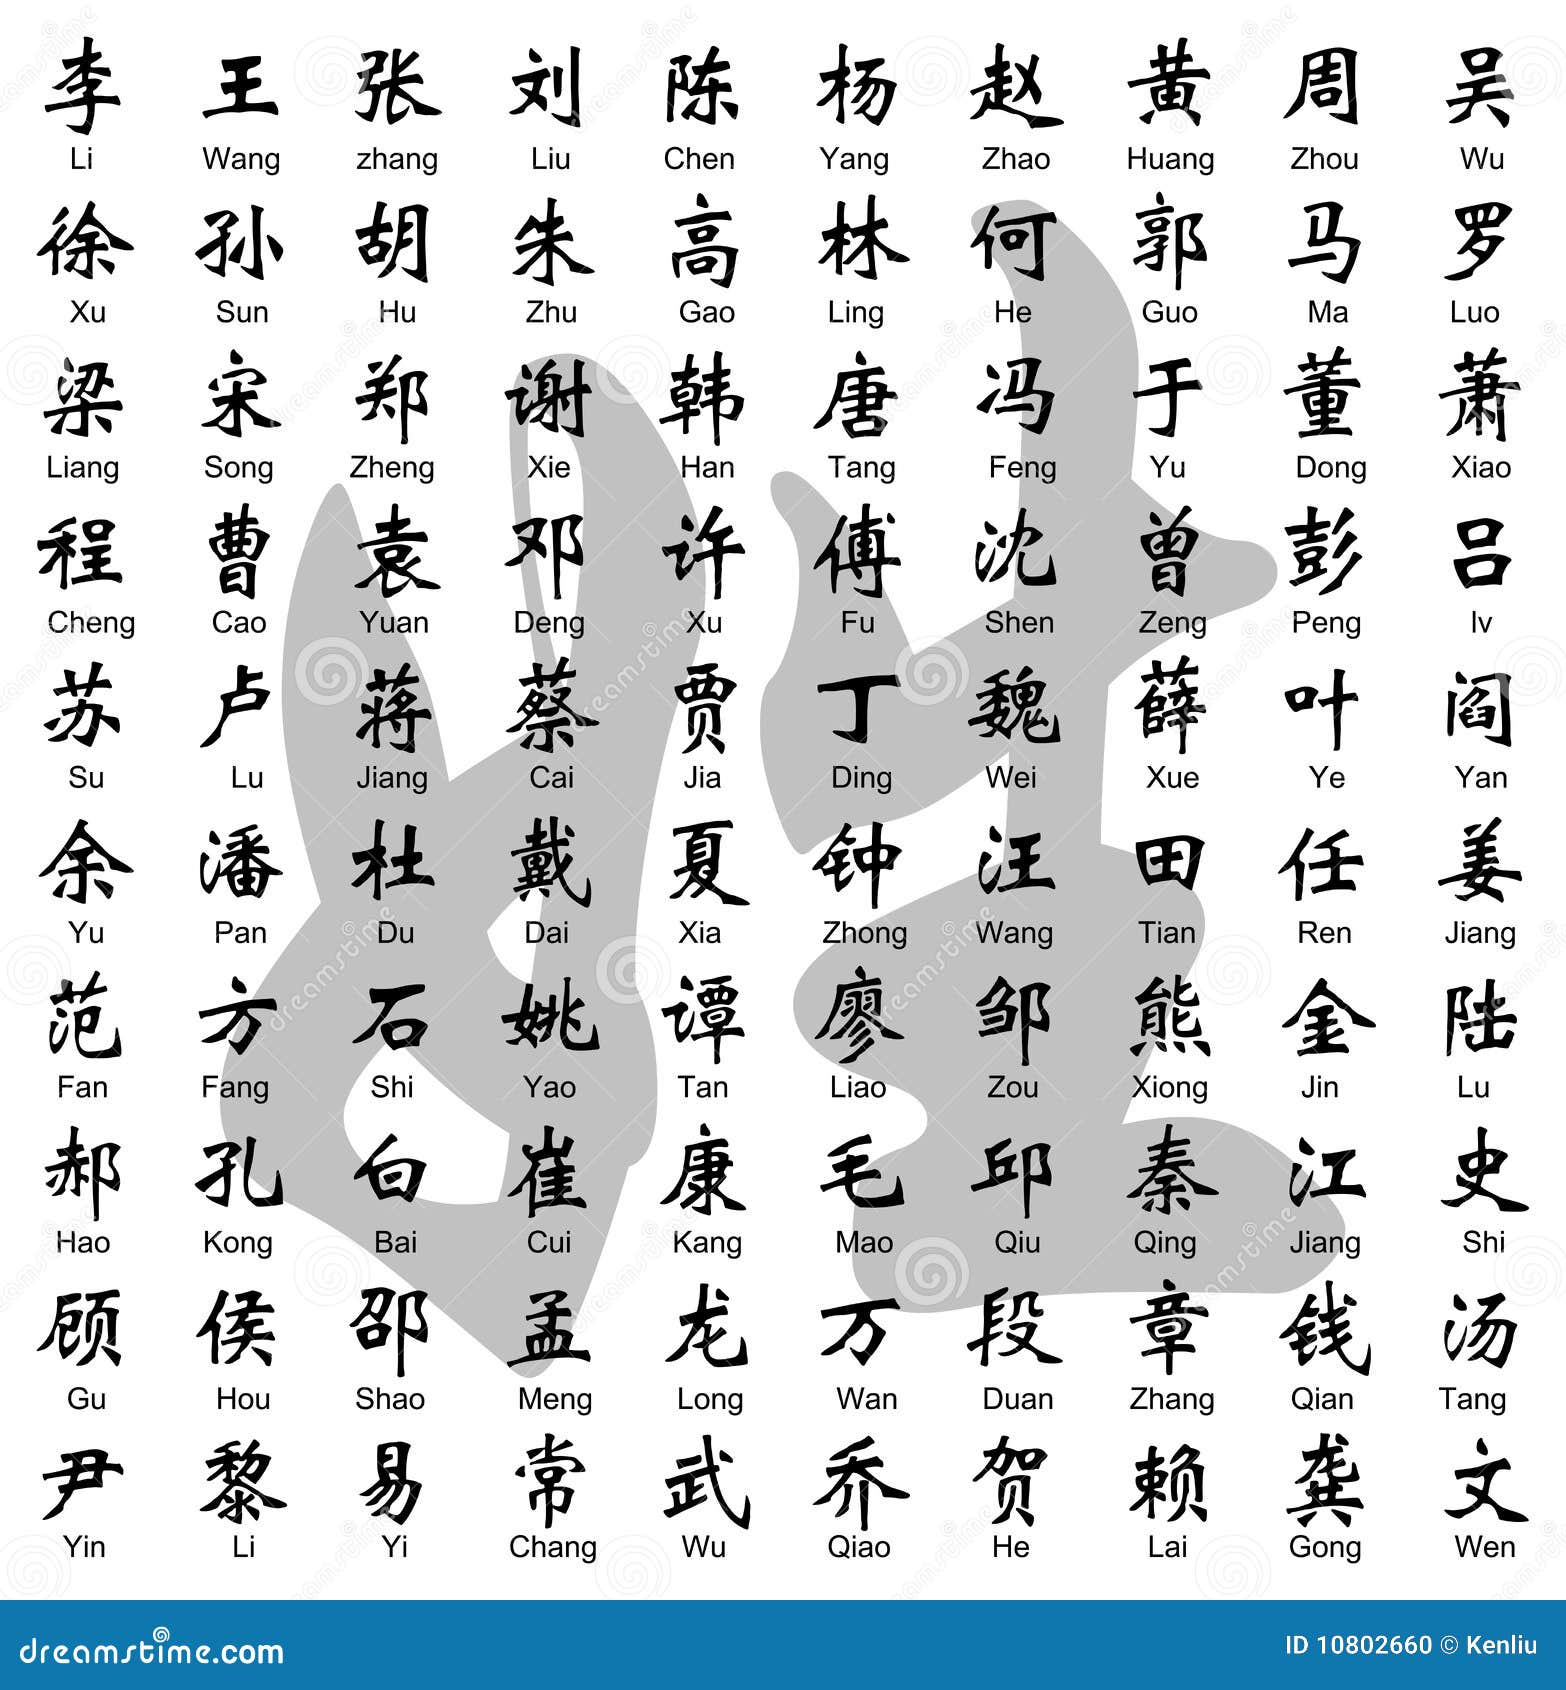 李 王 张 刘 陈 杨 赵 黄 周 吴
Li Wang zhang Liu Chen Yang Zhao Huang Zhou Wu
徐 孙 胡 朱 高 林 何 郭 马 罗
Xu Sun Hu Zhu Gao Ling He Guo Ma Luo
梁 宋 郑 谢 韩 唐 冯 于 董 萧
Liang Song Zheng Xie Han Tang Feng Yu Dong Xiao
程 曹 袁 邓 许 傅 沈 曾 彭 吕
Cheng Cao Yuan Deng Xu Fu Shen Zeng Peng lv
苏 卢 蒋 蔡 贾 丁 魏 薛 叶 阎
Su Lu Jiang Cai Jia Ding Wei Xue Ye Yan
余 潘 杜 戴 夏 钟 汪 田 任 姜
Yu Pan Du Dai Xia Zhong Wang Tian Ren Jiang
范 方 石 姚 谭 廖 邹 熊 金 陆
Fan Fang Shi Yao Tan Liao Zou Xiong Jin Lu
郝 孔 白 崔 康 毛 邱 秦 江 史
Hao Kong Bai Cui Kang Mao Qiu Qing Jiang Shi
顾 侯 邵 孟 龙 万 段 章 钱 汤
Gu Hou Shao Meng Long Wan Duan Zhang Qian Tang
尹 黎 易 常 武 乔 贺 赖 龚 文
Yin Li Yi Chang Wu Qiao He Lai Gong Wen
姓
dreamstime.com ID 10802660 © Kenliu